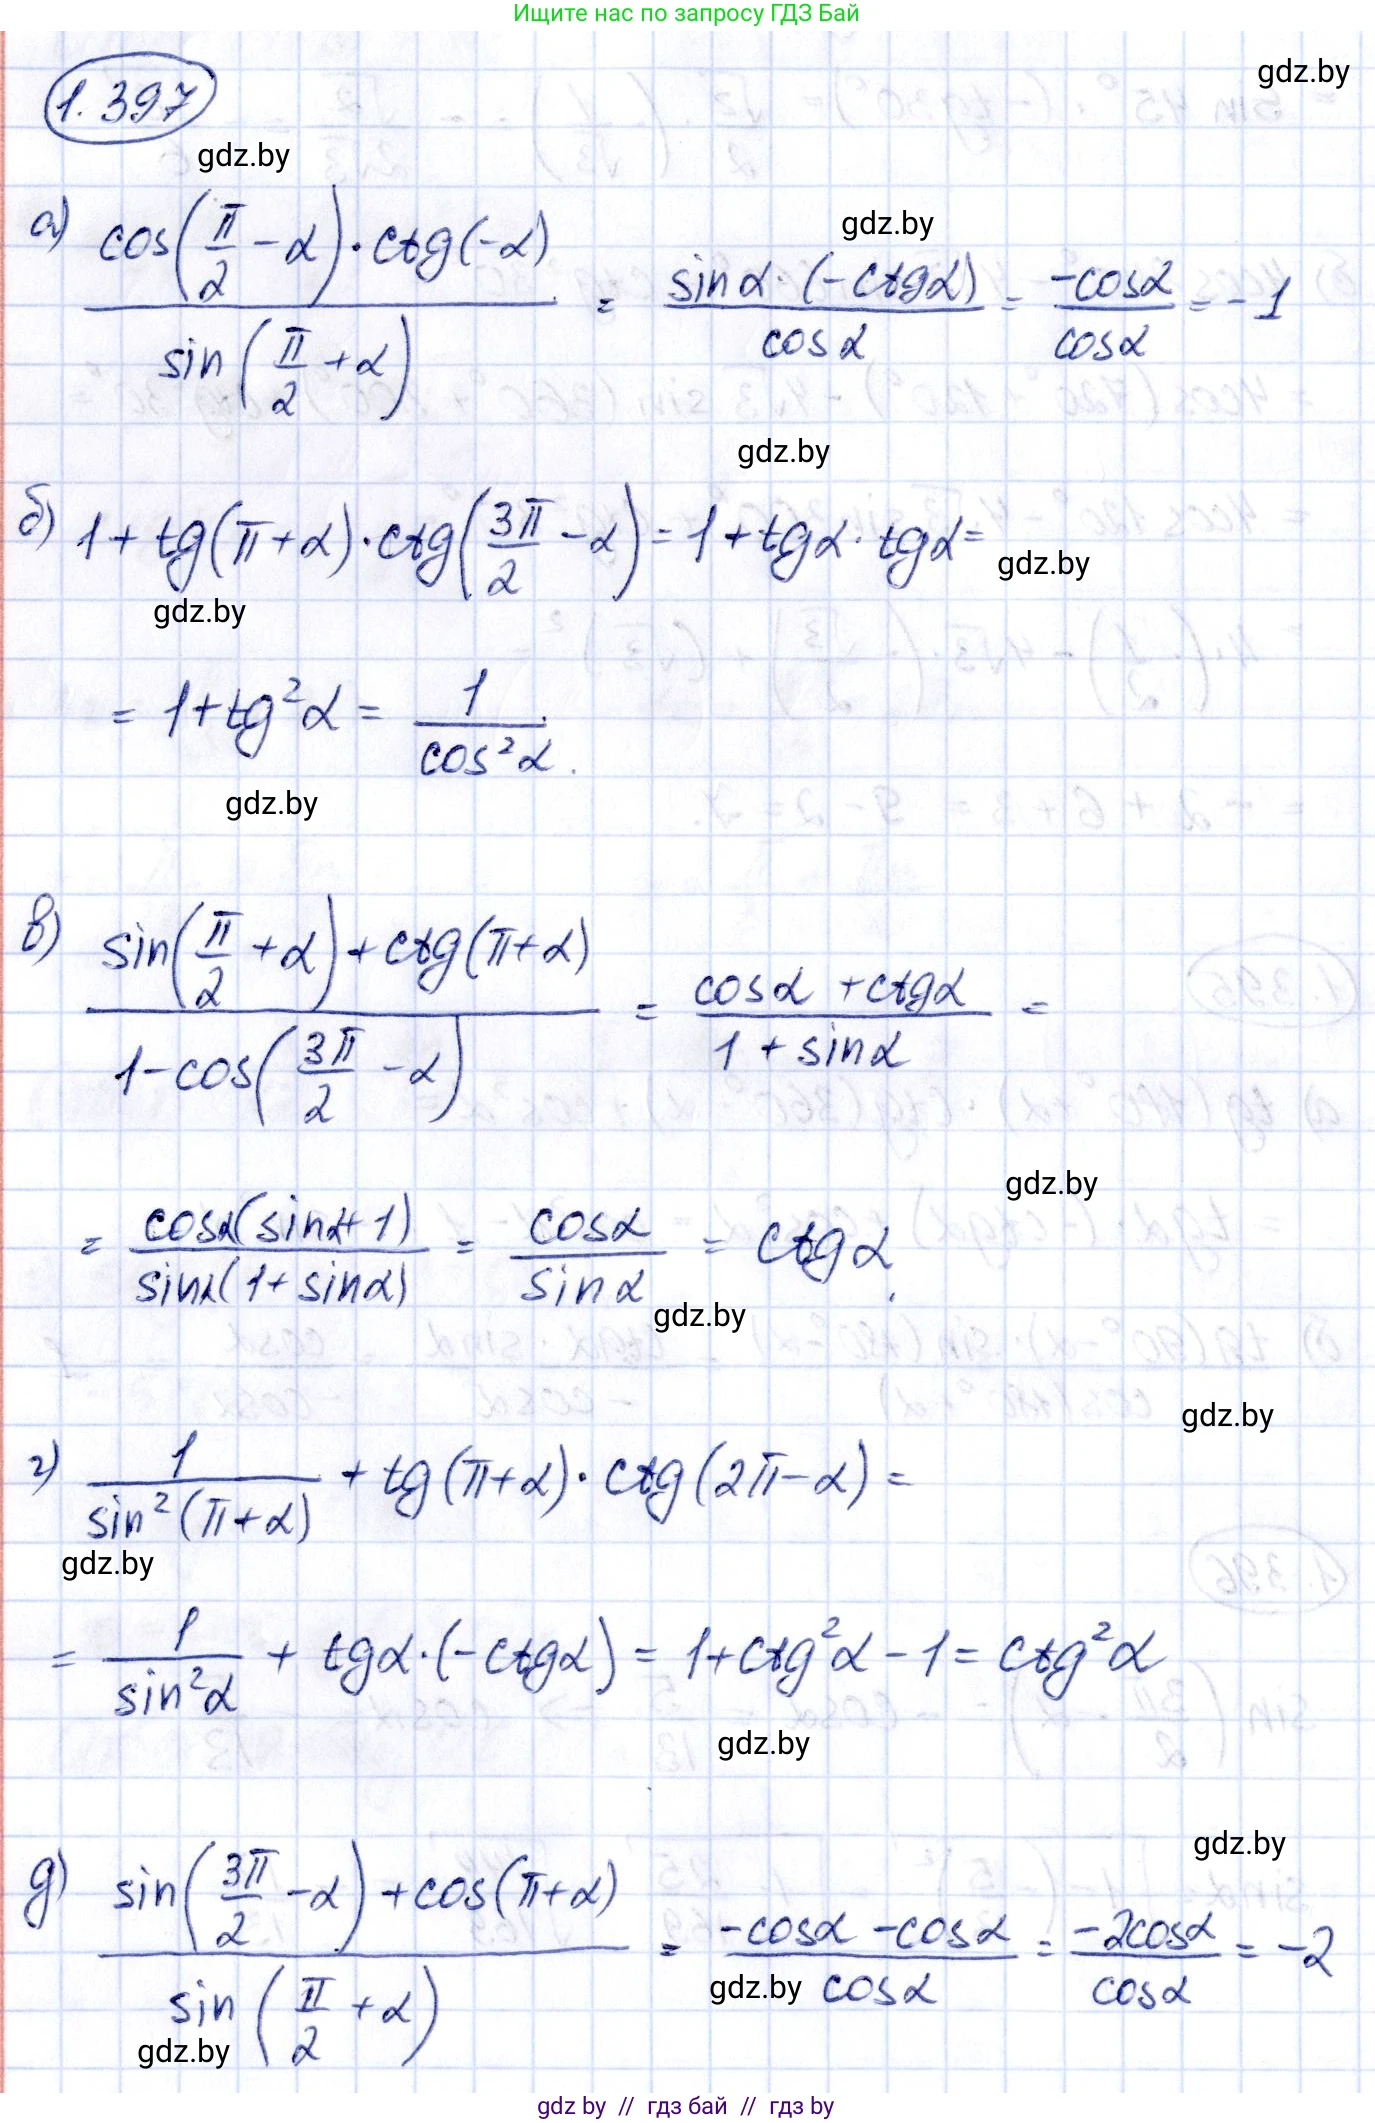 Ищите нас по запросу ГДЗ Бай
gdz.by
1.397
gdz.by
а) cos(π/2 − α) · ctg(−α) / sin(π/2 + α) = sinα · (−ctgα) / cosα = −cosα / cosα = −1
gdz.by
gdz.by
б) 1 + tg(π+α) · ctg(3π/2 − α) = 1 + tgα · tgα =
gdz.by
gdz.by
= 1 + tg²α = 1 / cos²α.
gdz.by
в) sin(π/2 + α) + ctg(π+α) / 1 − cos(3π/2 − α) = cosα + ctgα / 1 + sinα =
gdz.by
= cosα(sinα+1) / sinα(1+sinα) = cosα / sinα = ctgα.
gdz.by
gdz.by
г) 1 / sin²(π+α) + tg(π+α) · ctg(2π−α) =
gdz.by
= 1 / sin²α + tgα · (−ctgα) = 1 + ctg²α − 1 = ctg²α
gdz.by
gdz.by
д) sin(3π/2 − α) + cos(π+α) / sin(π/2 + α) = −cosα − cosα / cosα = −2cosα / cosα = −2
gdz.by
gdz.by
gdz.by // гдз бай // гдз by